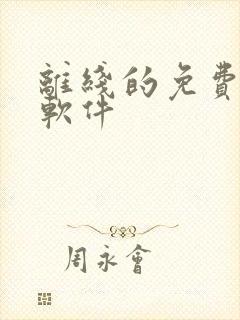 離綫的免費
軟件
周永會